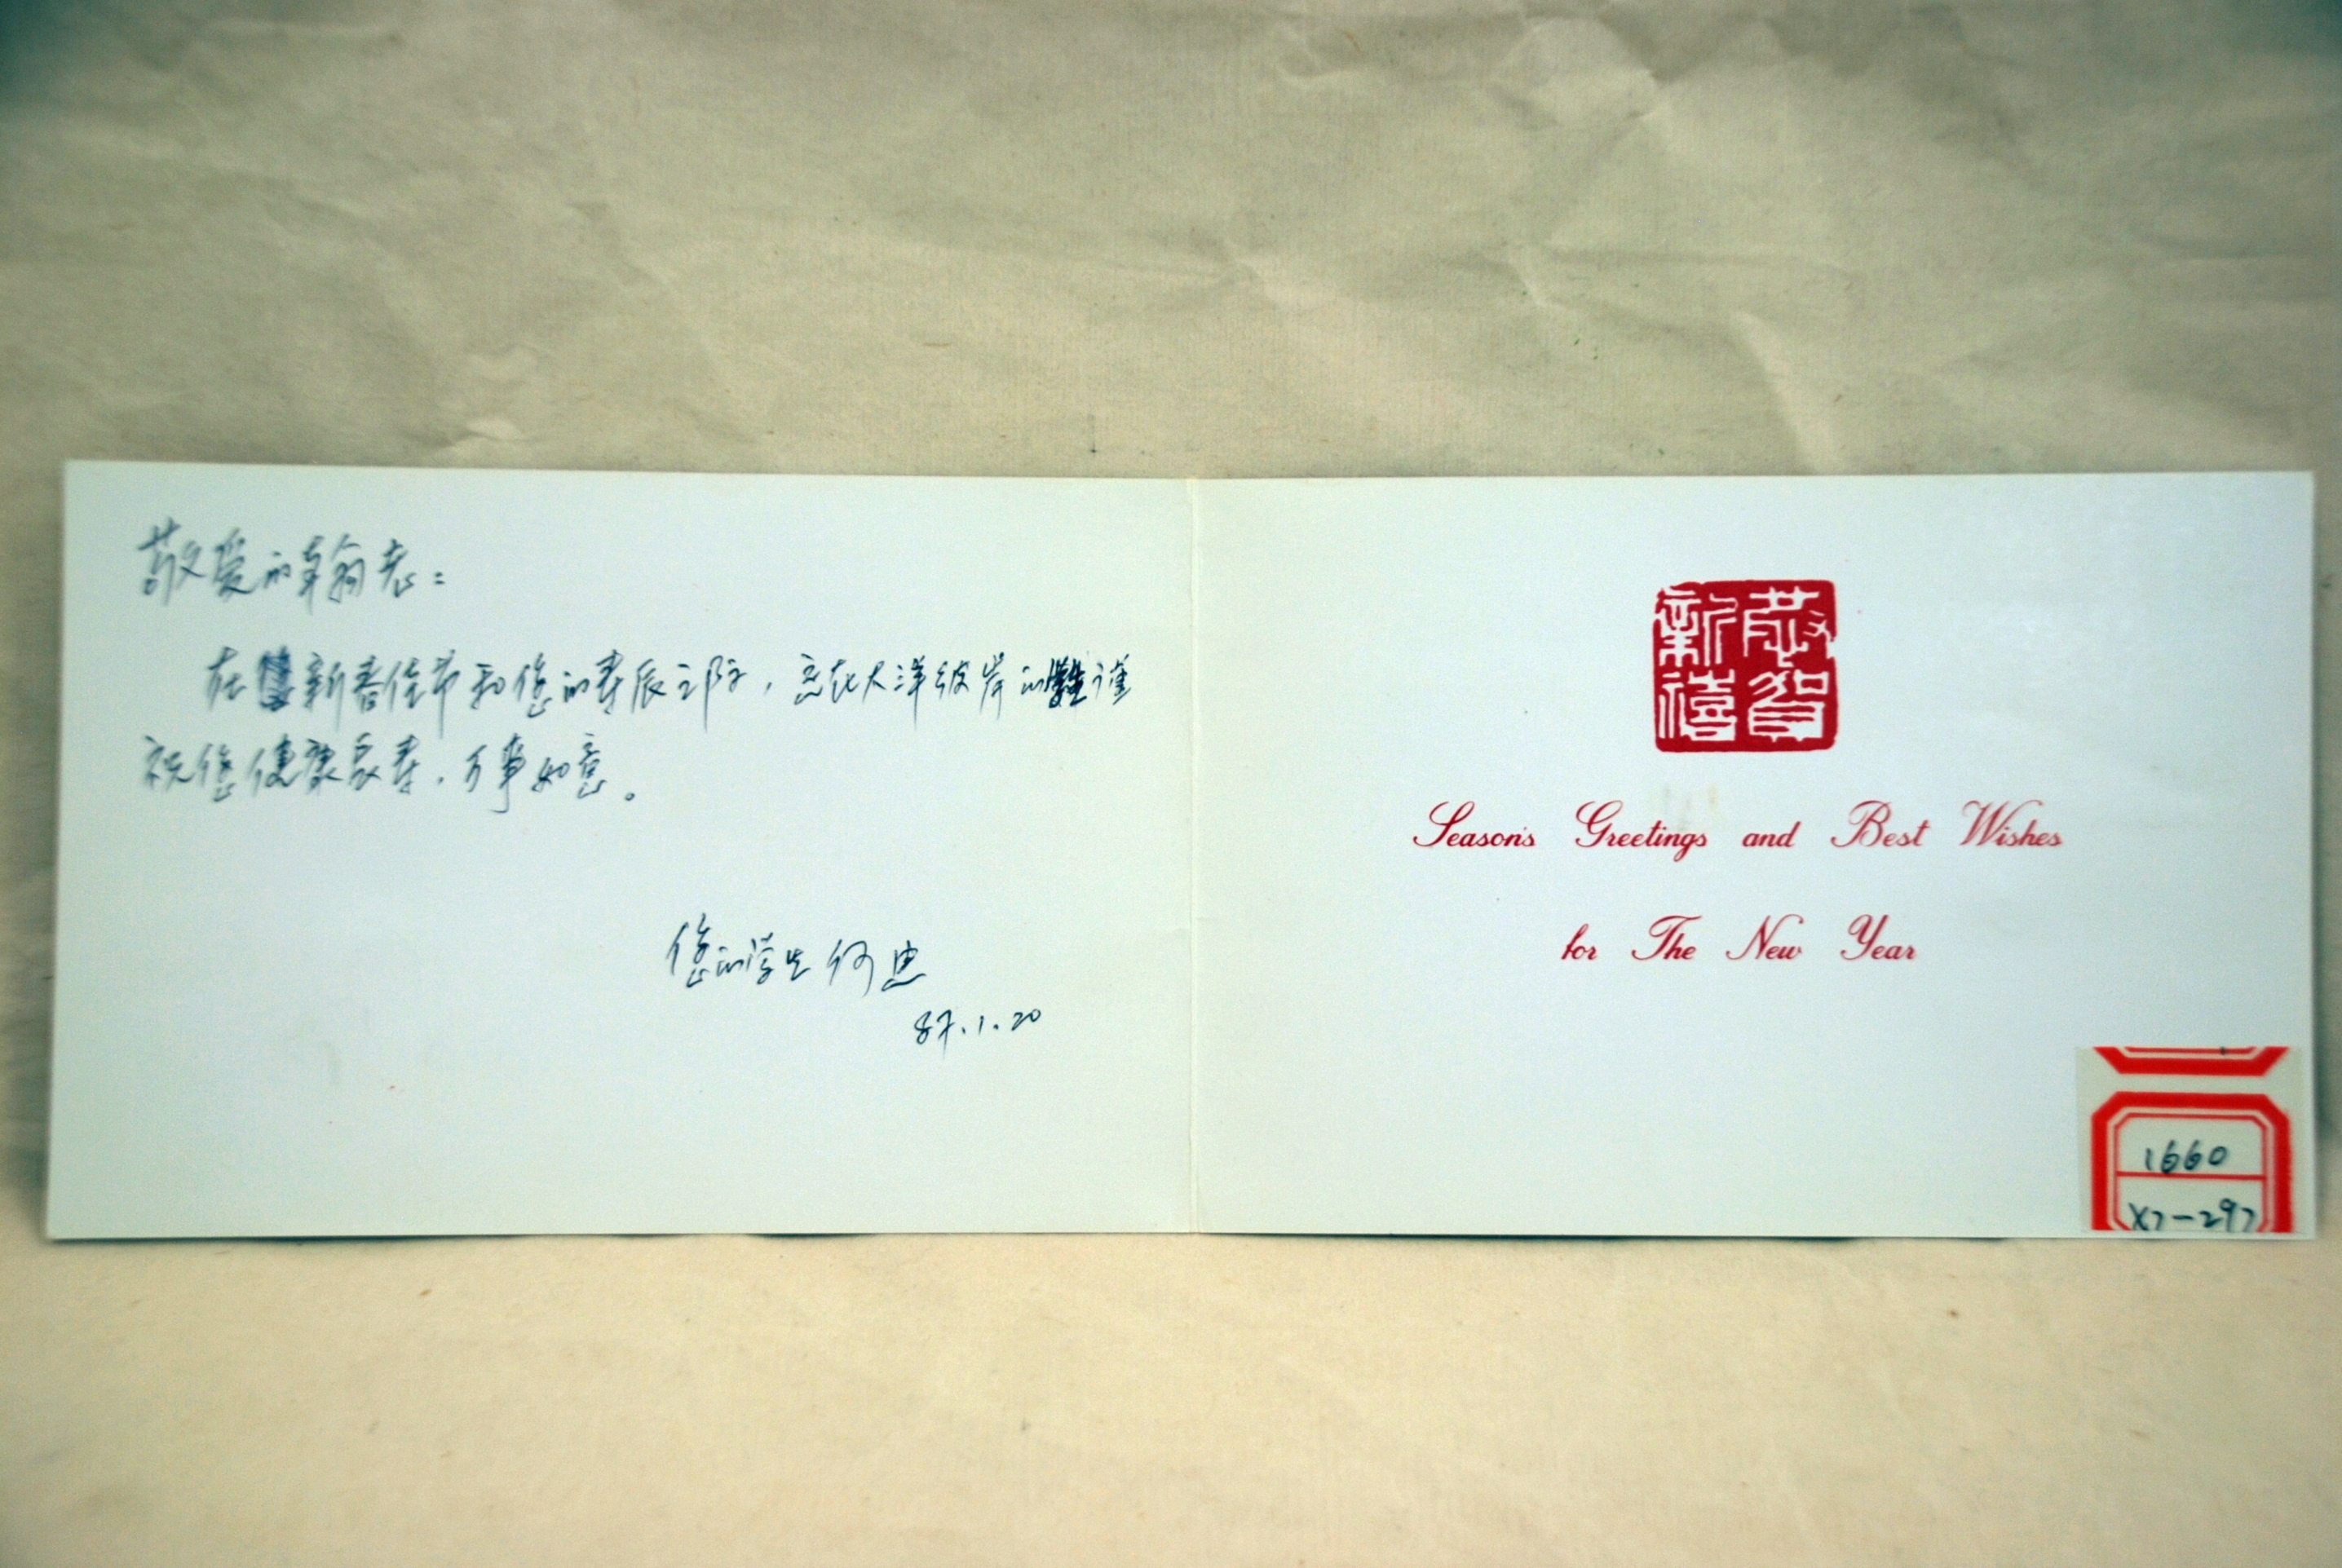 敬爱的翰老：
在新春佳节和您的寿辰之际，在大洋彼岸的谨
祝您健康长寿，万事如意。
您的学生何
87.1.20
恭贺新禧
Season's Greetings and Best Wishes
for The New Year
1660
X7-297